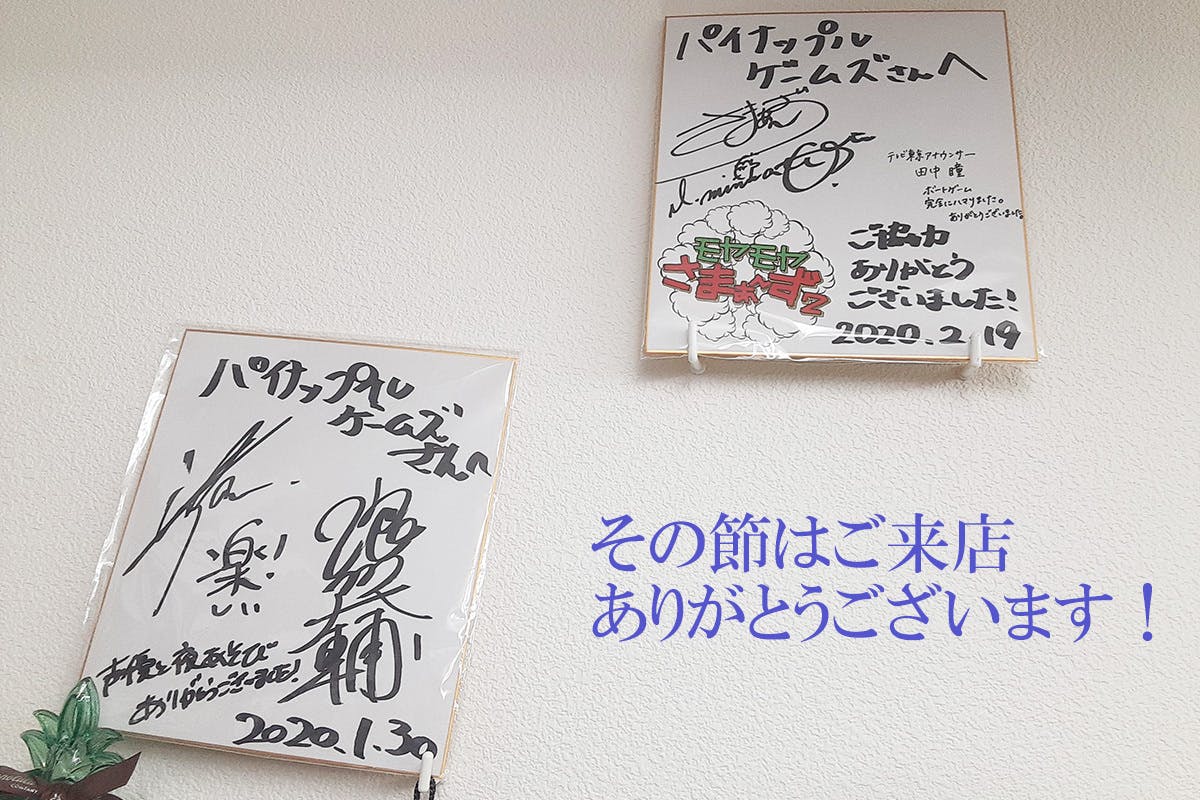 パイナップル
ゲームズさんへ
テレビ東京アナウンサー
田中 瞳
ボードゲーム
完全にハマりました。
ありがとうございました
モヤモヤ
さまぁ〜ず2
ご協力
ありがとう
ございました!
2020.2.19
パイナップル
ゲームズ
さんへ
楽しい!!
声優と夜あそび
ありがとうございました!
2020.1.30
その節はご来店
ありがとうございます！